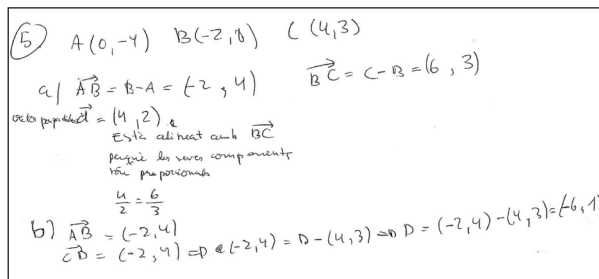 5 A(0,-4) B(-2,0) C(4,3)
a) AB = B-A = (-2,4) BC = C-B = (6,3)
= (4,2)
Està alineat amb BC
perquè les seves components
són proporcionals
4/2 = 6/3
b) AB = (-2,4)
CD = (-2,4) ⇒ (-2,4) = D-(4,3) ⇒ D = (-2,4)-(4,3) = (-6,1)